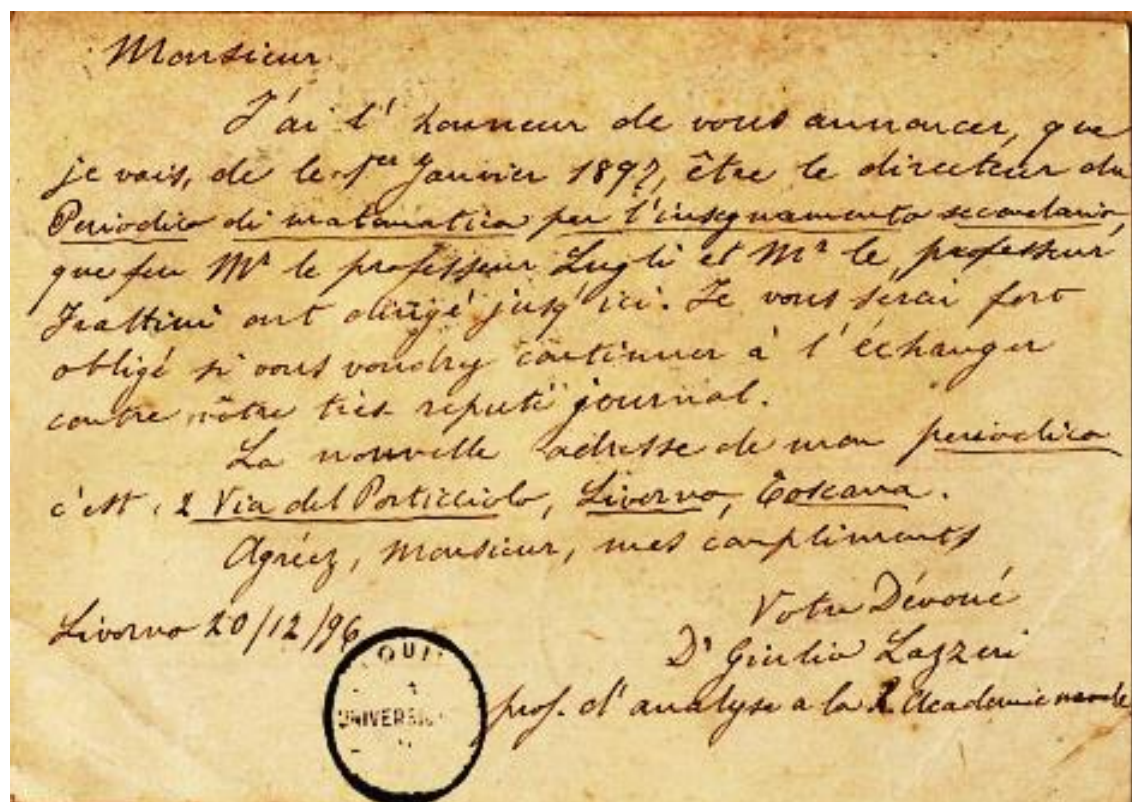 Monsieur
J'ai l' honneur de vous annoncer, que
je vais, de le 1er Janvier 1897, être le directeur du
Periodico di matematica per l'insegnamento secondario,
que feu Mr le professeur Lugli et Mr le professeur
Frattini ont dirigé jusq' ici. Je vous serai fort
obligé si vous voudrez continuer à l' échanger
contre vôtre très reputé journal.
La nouvelle adresse de mon periodico
c'est, 2 Via del Porticciolo, Livorno, Toscana.
Agréez, Monsieur, mes compliments
Votre Dévoué
Livorno 20/12/96
Dr Giulio Lazzeri
prof. d' analyse a la R. Academie navale